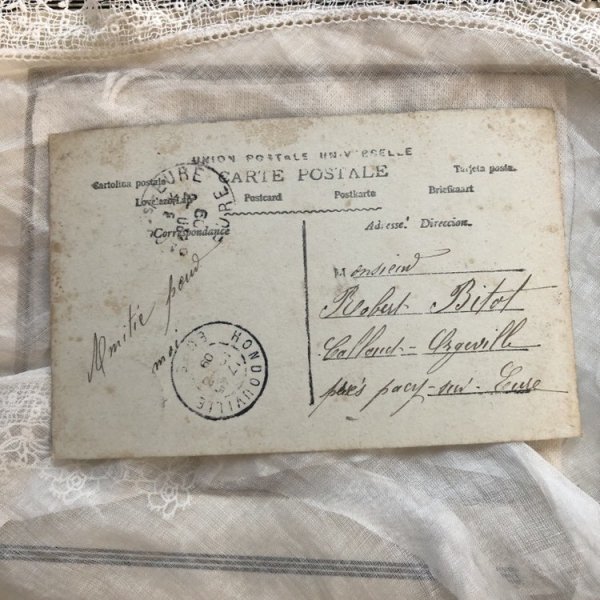 UNION POSTALE UNIVERSELLE
CARTE POSTALE
Cartolina postale
Tarjeta posta
Postcard Postkarte Briefkaart
Correspondance
Adresse Direccion
EURE
EURE
09
Amitié pour
moi
HONDOUVILLE
EURE
09
Monsieur
Robert Bitot
près pacy-sur-Eure